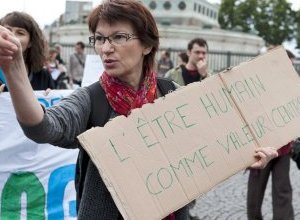 L'ÊTRE HUMAIN
COMME VALEUR CENTR